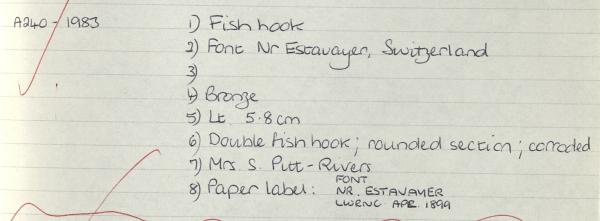 A240 - 1983 1) Fish hook
2) Font Nr Estavayer, Switzerland
3)
4) Bronze
5) Lt 5.8cm
6) Double fish hook; rounded section; corroded
7) Mrs. S. Pitt-Rivers
8) Paper label: FONT
NR. ESTAVAYER
LWRNC APR. 1899